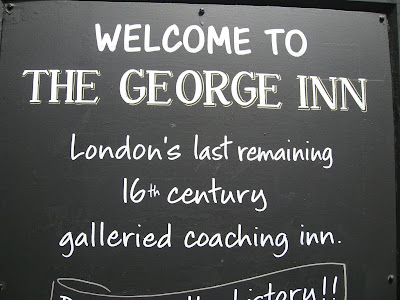 WELCOME TO
THE GEORGE INN
London's last remaining
16th century
galleried coaching inn.
history!!